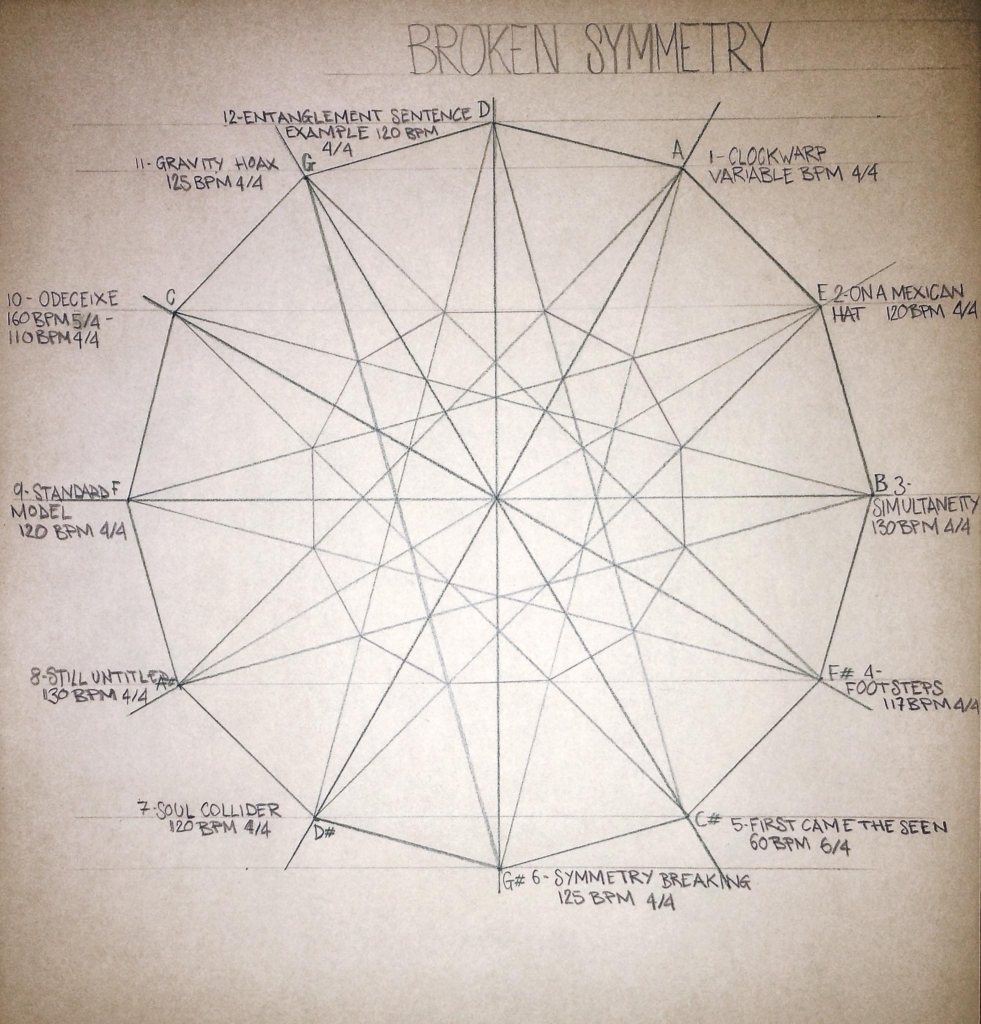 BROKEN SYMMETRY
12-ENTANGLEMENT SENTENCE
EXAMPLE 120 BPM
4/4
D
A
1-CLOCKWARP
VARIABLE BPM 4/4
11-GRAVITY HOAX
125 BPM 4/4
G
10-ODECEIXE
160BPM 5/4-
110BPM 4/4
C
E 2-ON A MEXICAN
HAT 120BPM 4/4
9-STANDARD F
MODEL
120 BPM 4/4
B 3-
SIMULTANEITY
130BPM 4/4
8-STILL UNTITLED
A#
130 BPM 4/4
F# 4-
FOOTSTEPS
117BPM 4/4
7-SOUL COLLIDER
120 BPM 4/4
D#
C# 5-FIRST CAME THE SEEN
60BPM 6/4
G# 6-SYMMETRY BREAKING
125 BPM 4/4